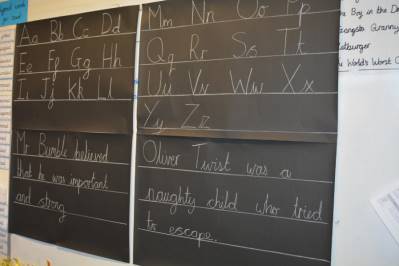 Aa Bb Cc Dd
Ee Ff Gg Hh
Ii Jj Kk Ll
Mr Bumble believed
that he was important
and strong
Mm Nn Oo Pp
Qq Rr Ss Tt
Uu Vv Ww Xx
Yy Zz
Oliver Twist was a
naughty child who tried
to escape.
Boy in the D
Gangsta Granny
Ratburger
World's Worst C